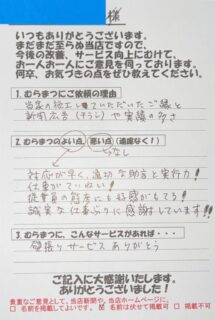 様
いつもありがとうございます。
まだまだ至らぬ当店ですので、
今後の改善、サービス向上にむけて、
おーおんおーにご意見を伺っております。
何卒、お気づきの点をぜひ教えてください。
1. むらまつにご依頼の理由。
当家の施工していただいたご縁と
新聞広告(チラシ)や実績の多さ
2. むらまつのよい点、悪い点(遠慮なく!)
なし
対応が早く、適切な助言と実行力!
仕事がていねい!
従業員の態度にも好感がもてる!
誠実な仕事ぶりに感謝しています!!
3. むらまつに、こんなサービスがあれば・・・
サービス ありがとう
ご記入に大感謝いたします。
ありがとうございました!
貴重なご意見として、当店新聞や、当店ホームページに、
□ 名前を掲載してよいです。 □ 名前は伏せて掲載可 □ 掲載不可